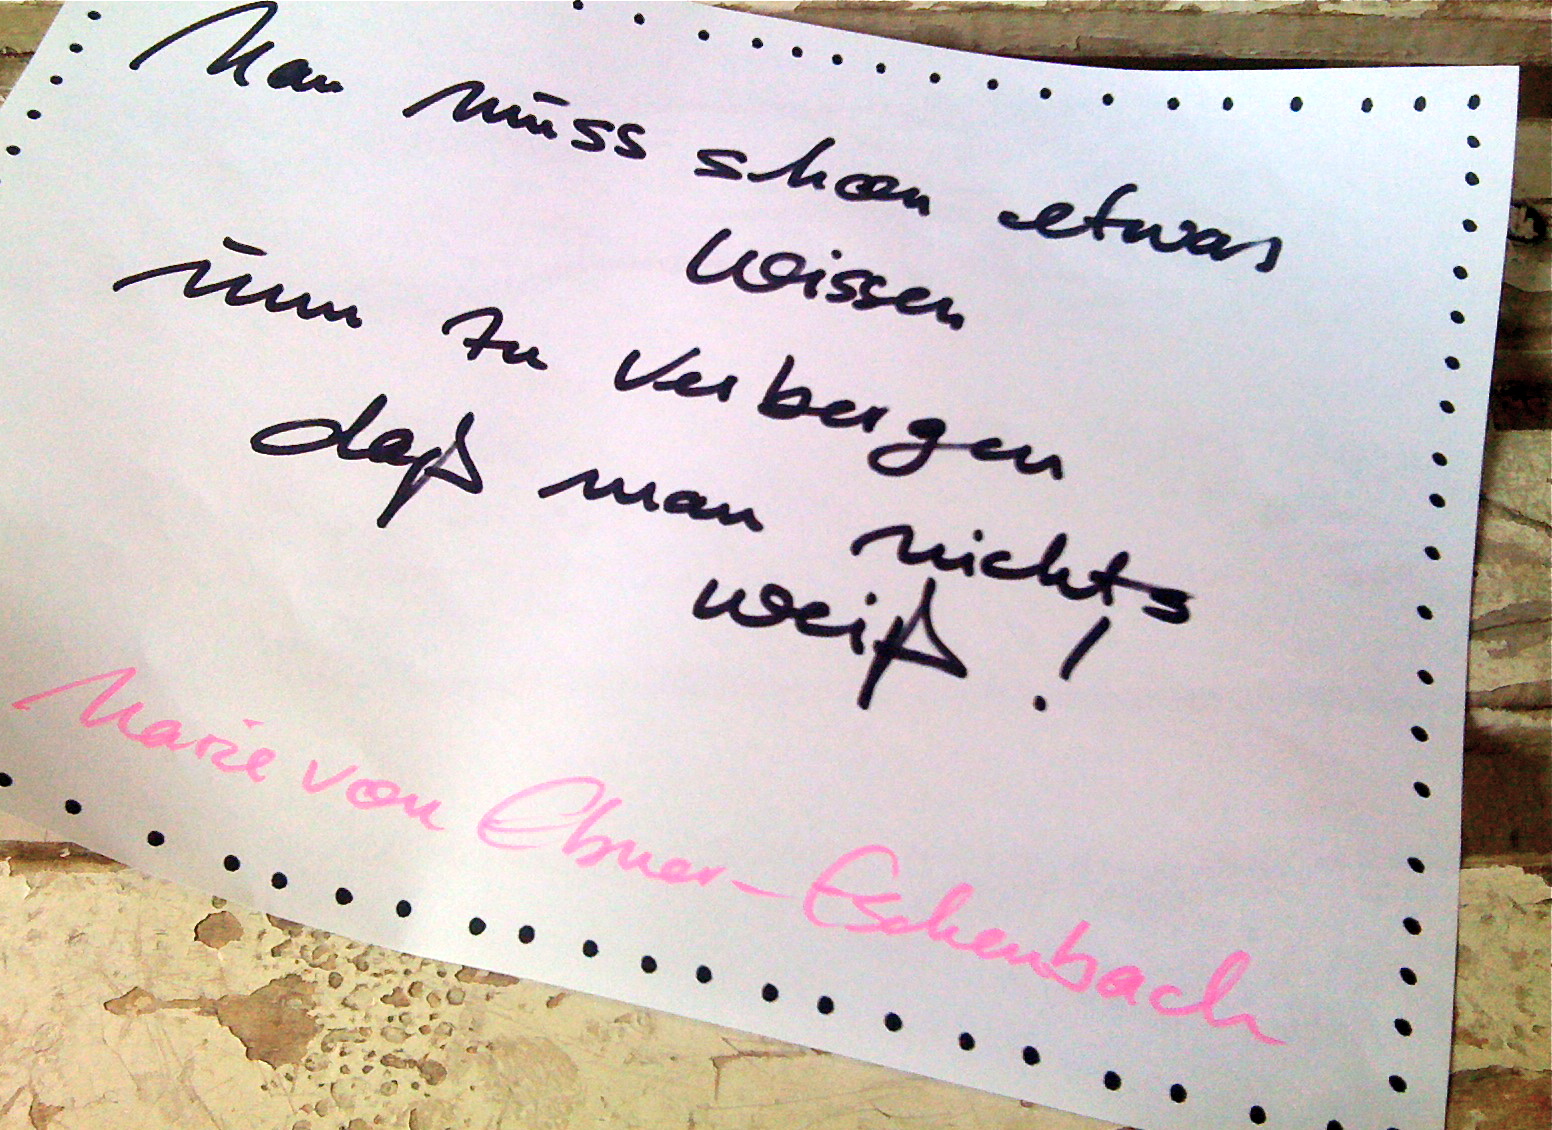 Man muss schon etwas
wissen
um zu verbergen
daß man nichts
weiß!
Marie von Ebner-Eschenbach